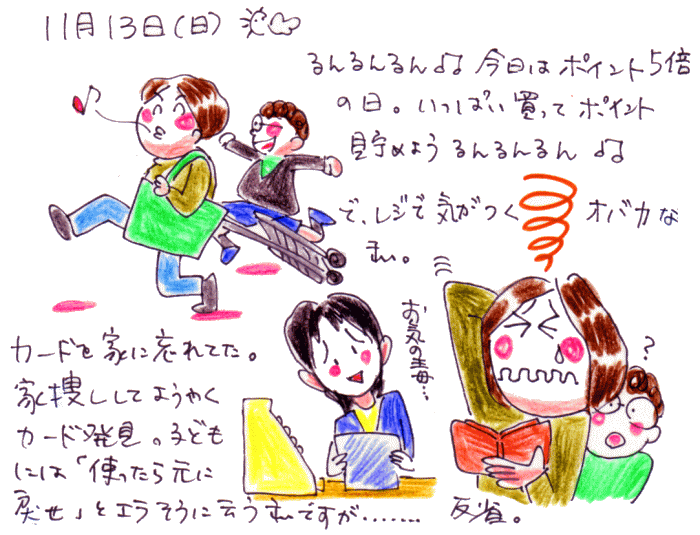 11月13日(日)
るんるんるん♪♫ 今日はポイント5倍
の日。いっぱい買ってポイント
貯めよう るんるんるん ♪♫
で、レジで気がつく オバカな
私。
お気の毒…
?
カードを家に忘れてた。
家捜ししてようやく
カード発見。子ども
には「使ったら元に
戻せ」とエラそうに云う私ですが……… 反省。